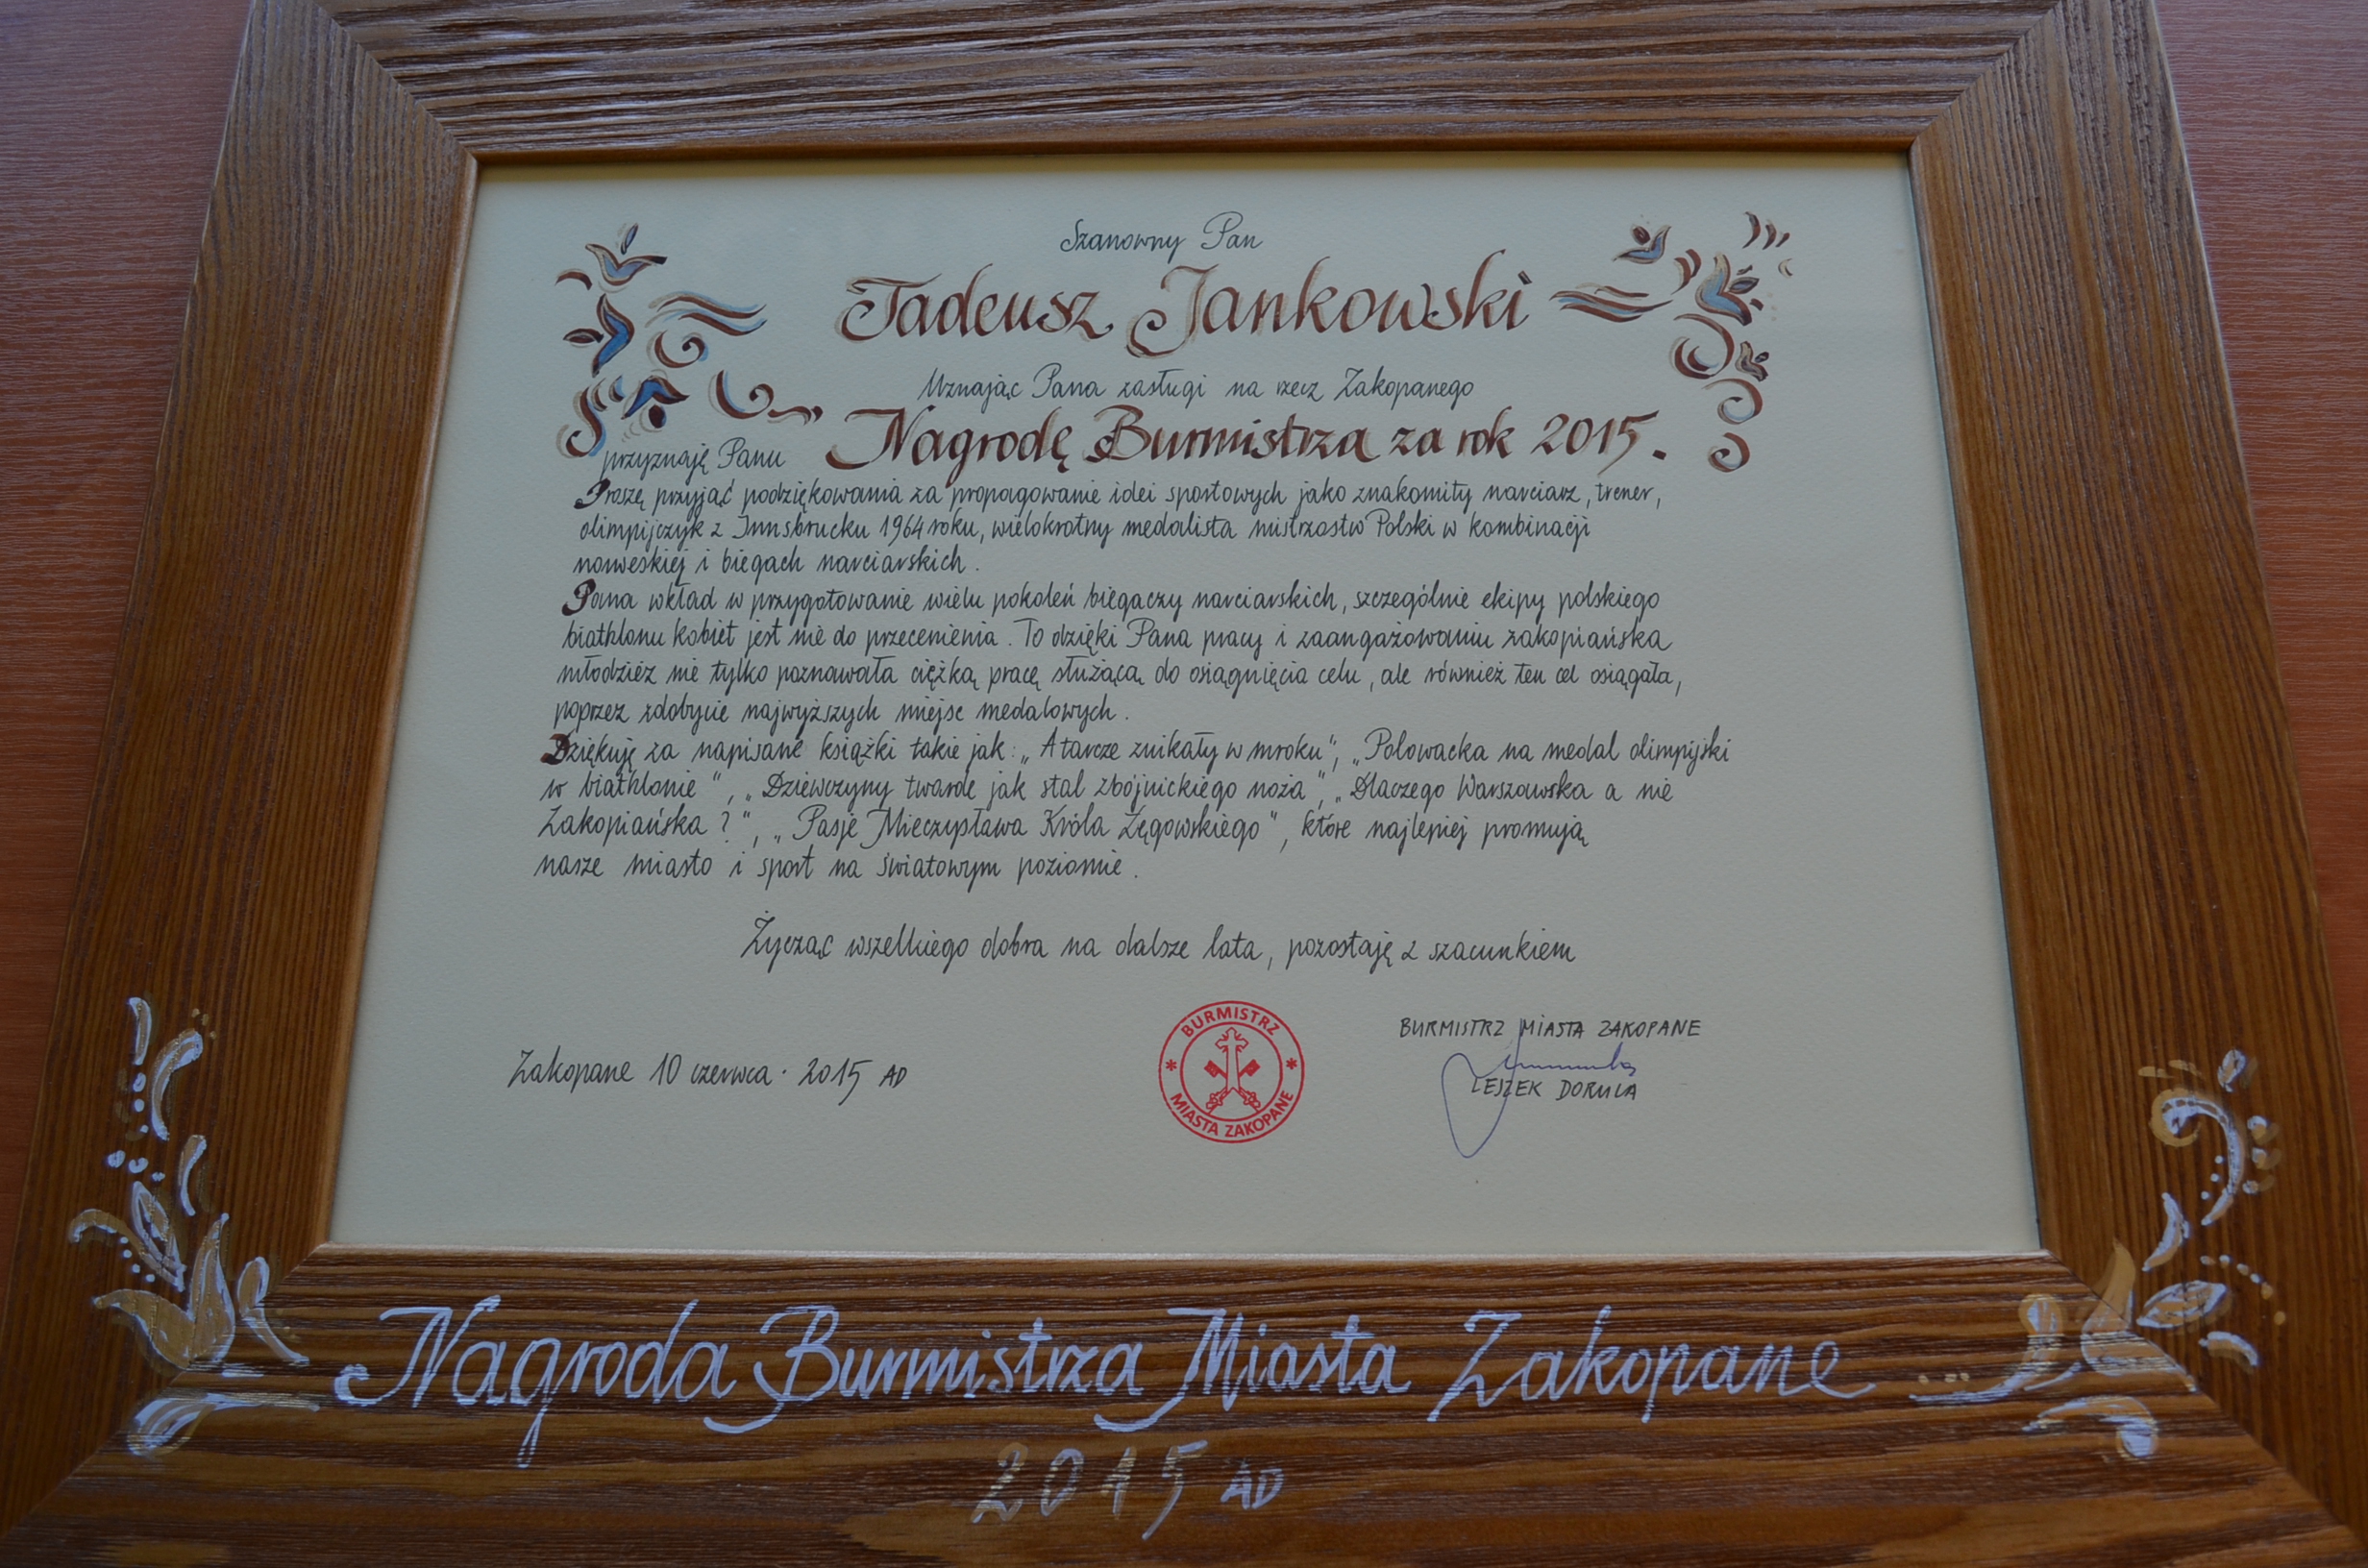 Szanowny Pan
Tadeusz Jankowski
Uznając Pana zasługi na rzecz Zakopanego
przyznaję Panu Nagrodę Burmistrza za rok 2015.
Proszę przyjąć podziękowania za propagowanie idei sportowych jako znakomity narciarz, trener,
olimpijczyk z Innsbrucku 1964 roku, wielokrotny medalista mistrzostw Polski w kombinacji
norweskiej i biegach narciarskich.
Pana wkład w przygotowanie wielu pokoleń biegaczy narciarskich, szczególnie ekipy polskiego
biathlonu kobiet jest nie do przecenienia. To dzięki Pana pracy i zaangażowaniu zakopiańska
młodzież nie tylko poznawała ciężką pracę służącą do osiągnięcia celu, ale również ten cel osiągała,
poprzez zdobycie najwyższych miejsc medalowych.
Dziękuję za napisane książki takie jak: „A tarcze znikały w mroku", „Polowacka na medal olimpijski
w biathlonie", „Dziewczyny twarde jak stal zbójnickiego noża", „Dlaczego Warszawska a nie
Zakopiańska?", „Pasje Mieczysława Króla Łęgowskiego", które najlepiej promują
nasze miasto i sport na światowym poziomie.
Życząc wszelkiego dobra na dalsze lata, pozostaję z szacunkiem
BURMISTRZ MIASTA ZAKOPANE
LESZEK DORULA
Zakopane 10 czerwca. 2015 AD
BURMISTRZ
* *
MIASTA ZAKOPANE
Nagroda Burmistrza Miasta Zakopane
2015 AD